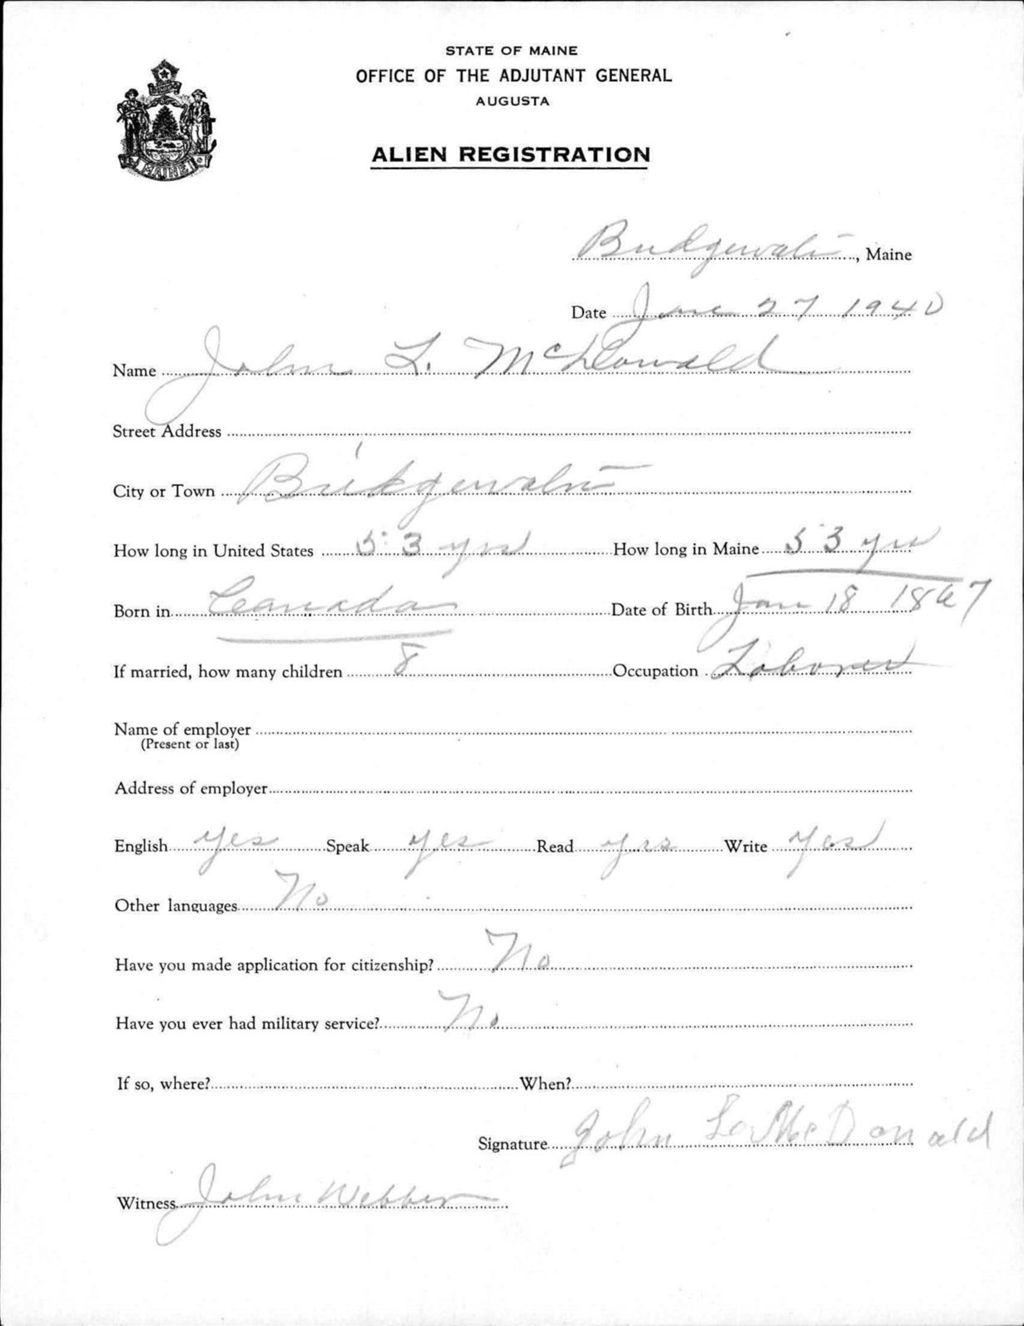 STATE OF MAINE
OFFICE OF THE ADJUTANT GENERAL
AUGUSTA
ALIEN REGISTRATION
MAINE
Bridgewater, Maine
Date June 27 1940
Name John L. McDonald
Street Address
City or Town Bridgewater
How long in United States 53 yrs How long in Maine 53 yrs
Born in Canada Date of Birth Jan 18 1867
If married, how many children 8 Occupation Laborer
Name of employer
(Present or last)
Address of employer
English yes Speak yes Read yes Write yes
Other languages No
Have you made application for citizenship? No
Have you ever had military service? No
If so, where? When?
Signature John L McDonald
Witness John Webber